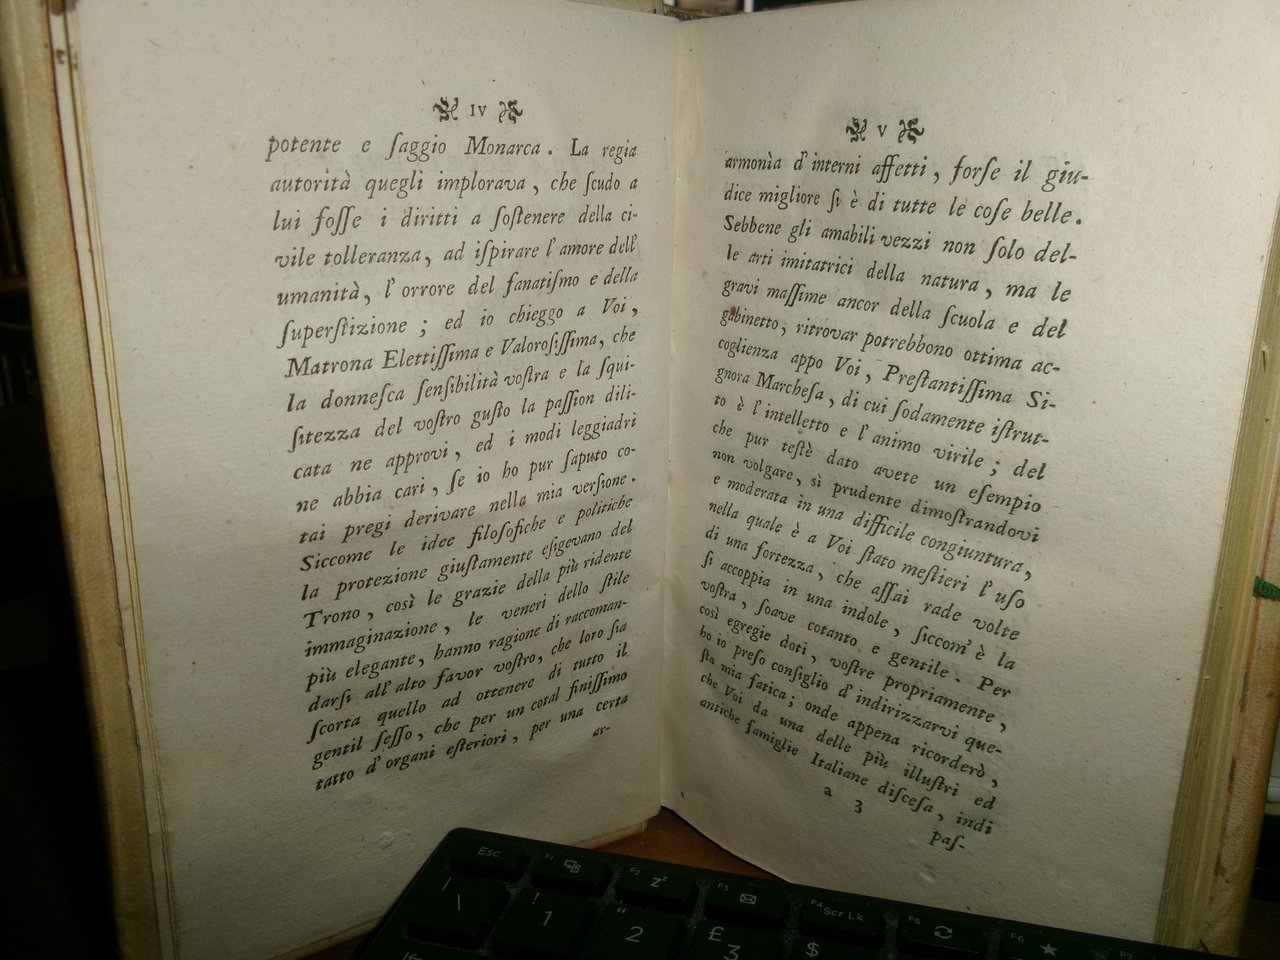 IV
potente e ſaggio Monarca. La regia
autorità quegli implorava, che ſcudo a
lui foſſe i diritti a ſoſtenere della ci-
vile tolleranza, ad iſpirare l'amore dell'
umanità, l'orrore del fanatiſmo e della
ſuperſtizione; ed io chieggo a Voi,
Matrona Elettiſſima e Valoroſiſſima, che
la donneſca ſenſibilità voſtra e la ſqui-
ſitezza del voſtro guſto la paſſion dili-
cata ne approvi, ed i modi leggiadri
ne abbia cari, ſe io ho pur ſaputo co-
tai pregi derivare nella mia verſione.
Siccome le idee filoſofiche e politiche
la protezione giuſtamente eſigevano del
Trono, così le grazie della più ridente
immaginazione, le veneri dello ſtile
più elegante, hanno ragione di raccoman-
darſi all'alto favor voſtro, che loro ſia
ſcorta quello ad ottenere di tutto il
gentil ſeſſo, che per un cotal finiſſimo
tatto d'organi eſteriori, per una certa
ar-
V
armonìa d'interni affetti, forſe il giu-
dice migliore ſi è di tutte le coſe belle.
Sebbene gli amabili vezzi non ſolo del-
le arti imitatrici della natura, ma le
gravi maſſime ancor della ſcuola e del
gabinetto, ritrovar potrebbono ottima ac-
coglienza appo Voi, Preſtantiſſima Si-
gnora Marcheſa, di cui ſodamente iſtrut-
to è l'intelletto e l'animo virile; del
che pur teſtè dato avete un eſempio
non volgare, sì prudente dimoſtrandovi
e moderata in una difficile congiuntura,
nella quale è a Voi ſtato meſtieri l'uſo
di una fortezza, che aſſai rade volte
ſi accoppia in una indole, ſiccom'è la
voſtra, ſoave cotanto e gentile. Per
così egregie doti, voſtre propriamente,
ho io preſo conſiglio d'indirizzarvi que-
ſta mia fatica; onde appena ricorderò,
che Voi da una delle più illuſtri ed
antiche famiglie Italiane diſceſa, indi
a 3
paſ-
Esc
F1
F2
Z
F3
F4
Scr Lk
F5
F6
\
!
1
"
2
£
3
$